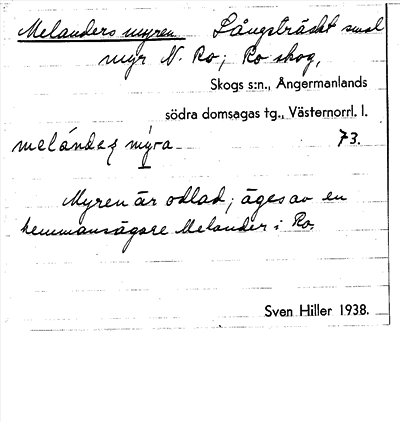 Melanders myren Långsträckt smal
myr N. Ro; Ro skog,
Skogs s:n., Ångermanlands
södra domsagas tg., Västernorrl. l.
melándeʂ mýra 73.
Myren är odlad; äges av en
hemmansägare Melander i Ro.
Sven Hiller 1938.